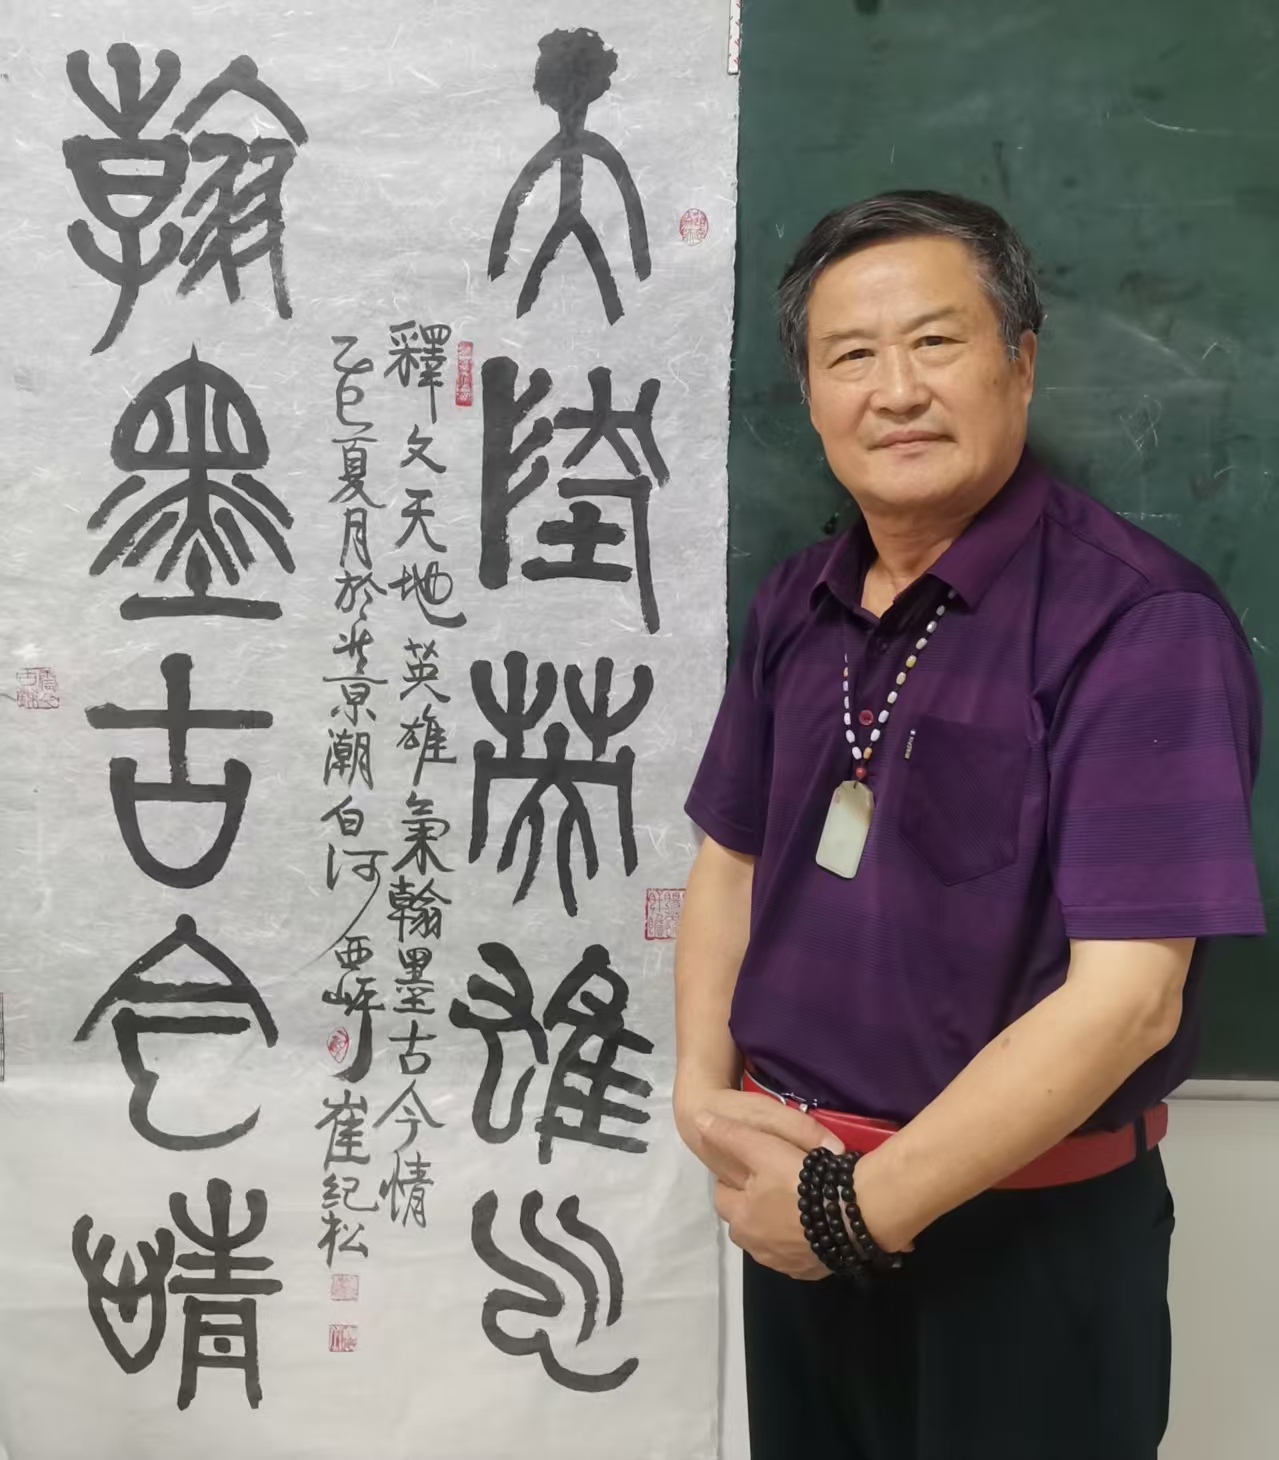 天地英雄气
釋文天地英雄氣翰墨古今情
乙巳夏月於北京潮白河西岸崔紀松
翰墨古今情